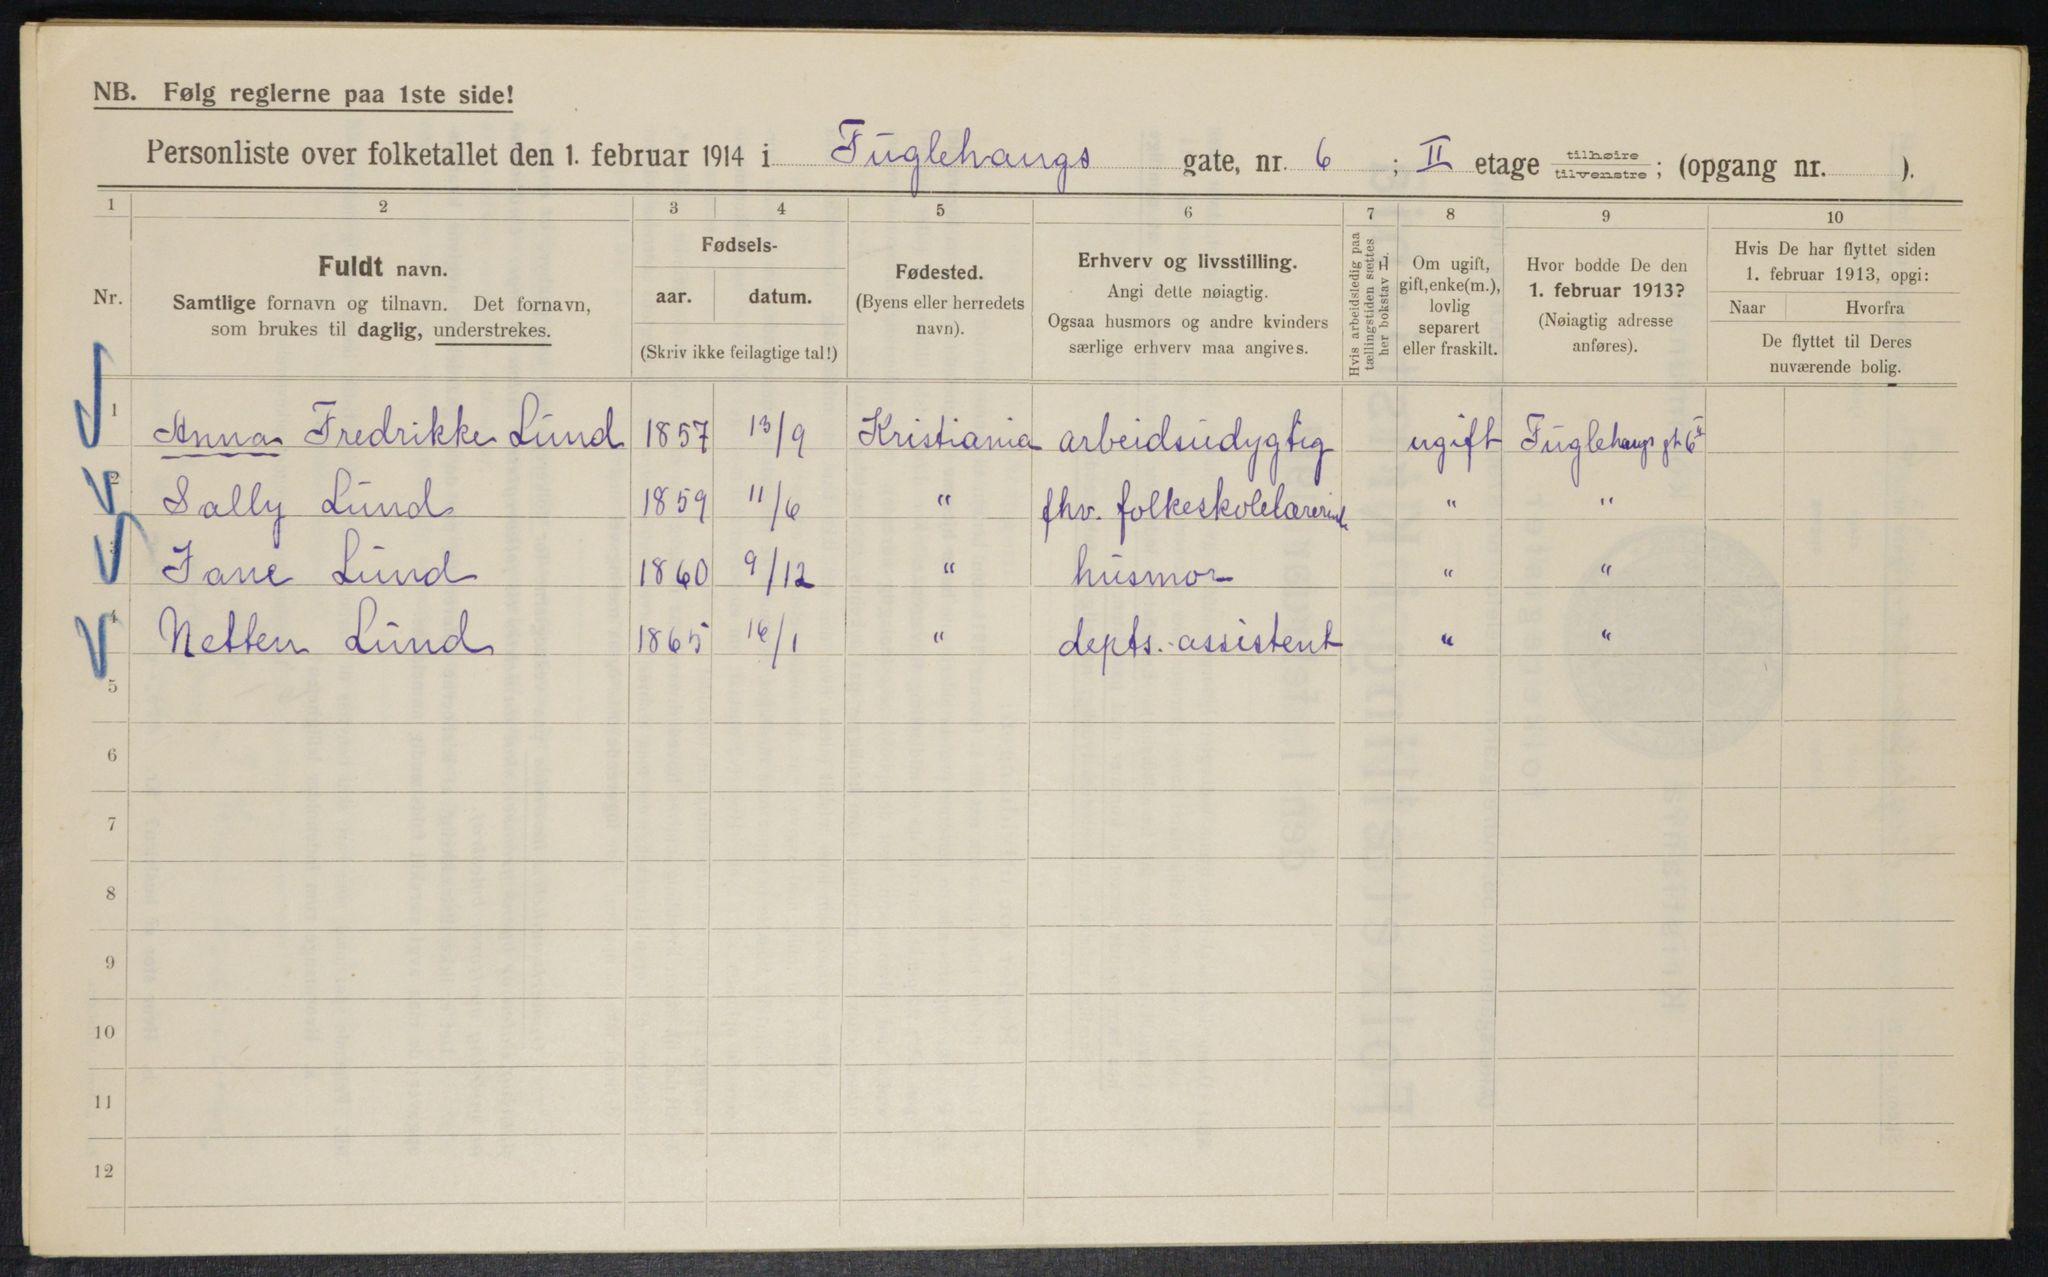 NB. Følg reglerne paa 1ste side!
Personliste over folketallet den 1. februar 1914 i Fuglehaugs gate, nr. 6 ; II etage tilhøire tilvenstre ; (opgang nr. ).
1 2 3 4 5 6 7 8 9 10
Nr.
Fuldt navn.
Samtlige fornavn og tilnavn. Det fornavn,
som brukes til daglig, understrekes.
Fødsels-
aar. datum.
(Skriv ikke feilagtige tal!)
Fødested.
(Byens eller herredets
navn).
Erhverv og livsstilling.
Angi dette nøiagtig.
Ogsaa husmors og andre kvinders
særlige erhverv maa angives.
Hvis arbeidsledig paa
tællingstiden sættes
her bokstav L.
Om ugift,
gift, enke(m.),
lovlig
separert
eller fraskilt.
Hvor bodde De den
1. februar 1913?
(Nøiagtig adresse
anføres).
Hvis De har flyttet siden
1. februar 1913, opgi:
Naar Hvorfra
De flyttet til Deres
nuværende bolig.
1 Anna Fredrikke Lund 1857 13/9 Kristiania arbeidsudygtig ugift Fuglehaugs gt 6 II
2 Sally Lund 1859 11/6 " fhv. folkeskolelærerinde " "
3 Jane Lund 1860 9/12 " husmor " "
4 Netten Lund 1865 16/1 " depts.-assistent " "
5
6
7
8
9
10
11
12